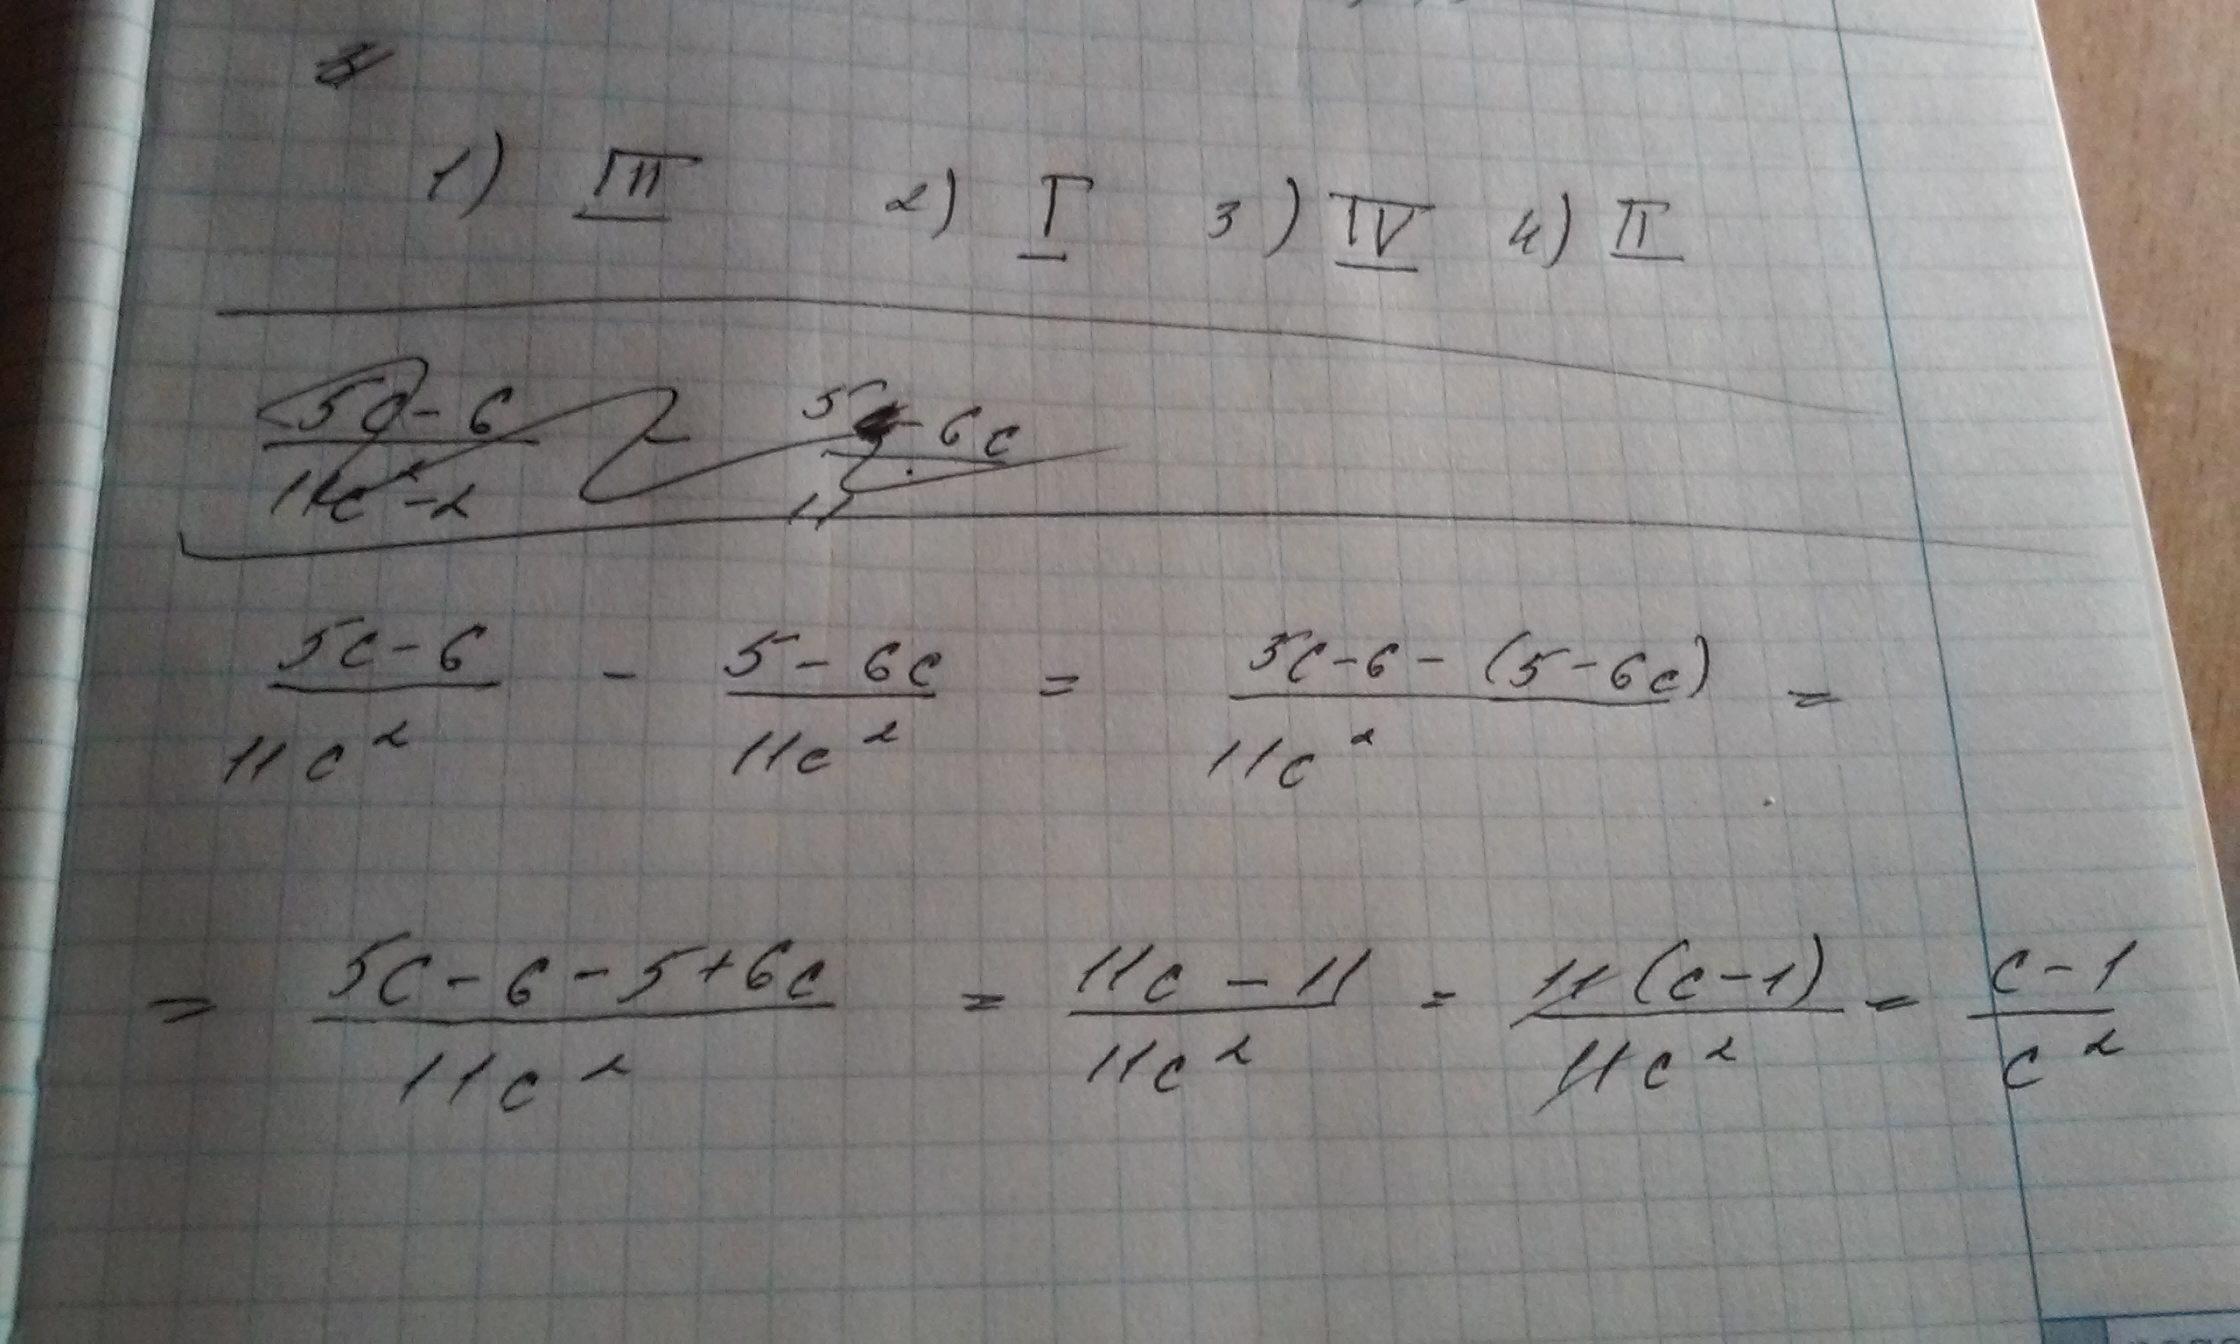 1) III 2) I 3) IV 4) II
5c-6/11c²-2 5-6c/11
5c-6/11c² - 5-6c/11c² = 5c-6-(5-6c)/11c² =
= 5c-6-5+6c/11c² = 11c-11/11c² = 11(c-1)/11c² = c-1/c²